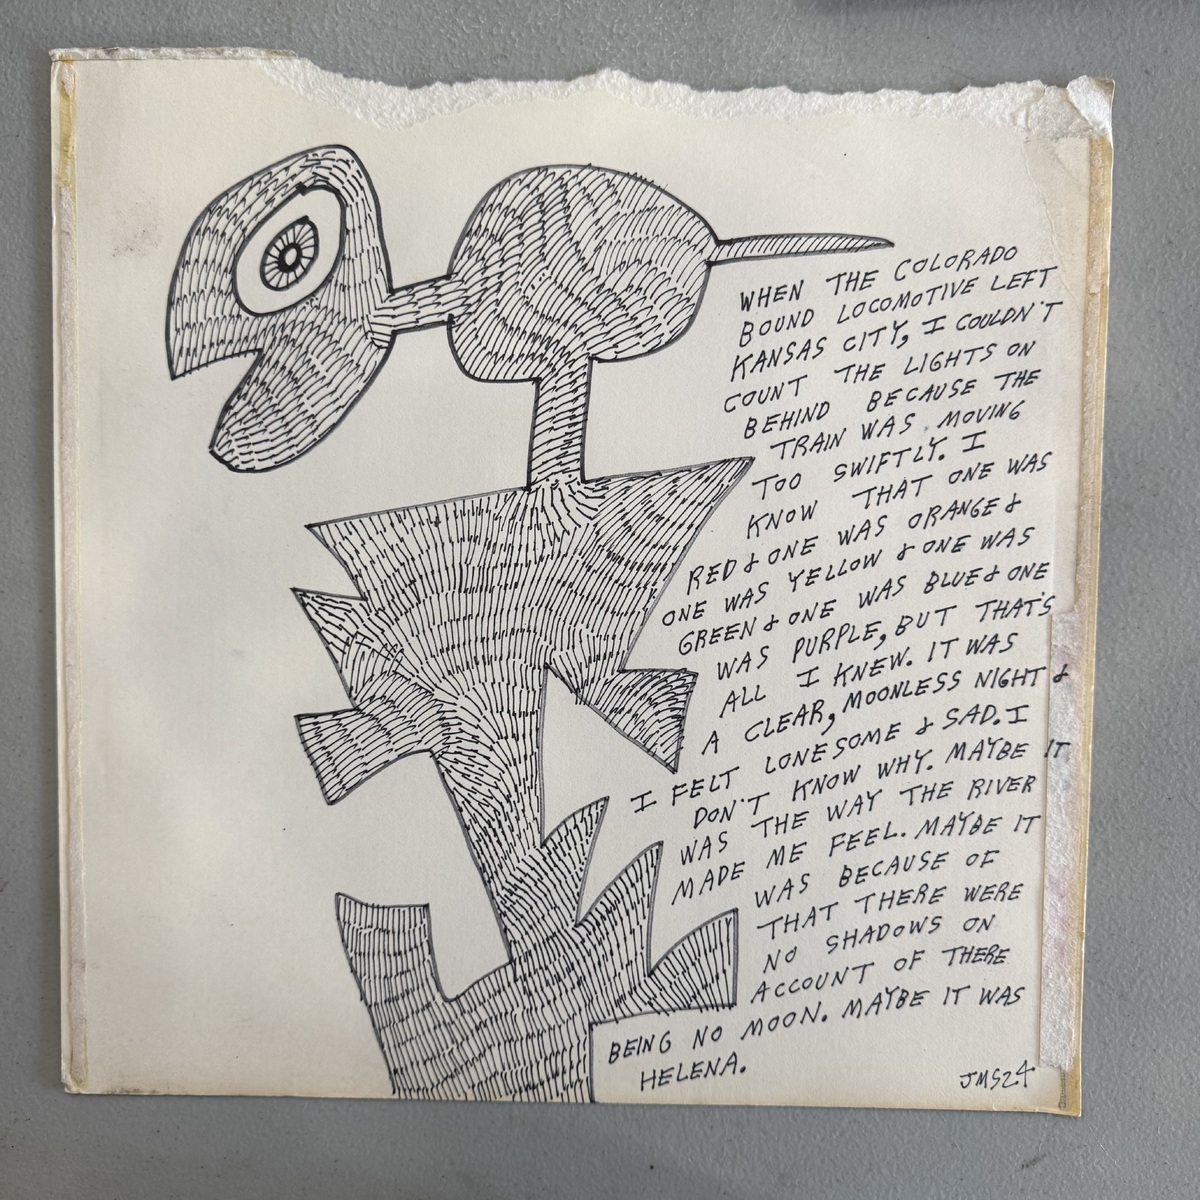 WHEN THE COLORADO
BOUND LOCOMOTIVE LEFT
KANSAS CITY, I COULDN'T
COUNT THE LIGHTS ON
BEHIND BECAUSE THE
TRAIN WAS MOVING
TOO SWIFTLY. I
KNOW THAT ONE WAS
RED & ONE WAS ORANGE &
ONE WAS YELLOW & ONE WAS
GREEN & ONE WAS BLUE & ONE
WAS PURPLE, BUT THAT'S
ALL I KNEW. IT WAS
A CLEAR, MOONLESS NIGHT &
I FELT LONESOME & SAD. I
DON'T KNOW WHY. MAYBE IT
WAS THE WAY THE RIVER
MADE ME FEEL. MAYBE IT
WAS BECAUSE OF
THAT THERE WERE
NO SHADOWS ON
ACCOUNT OF THERE
BEING NO MOON. MAYBE IT WAS
HELENA.
JMS24